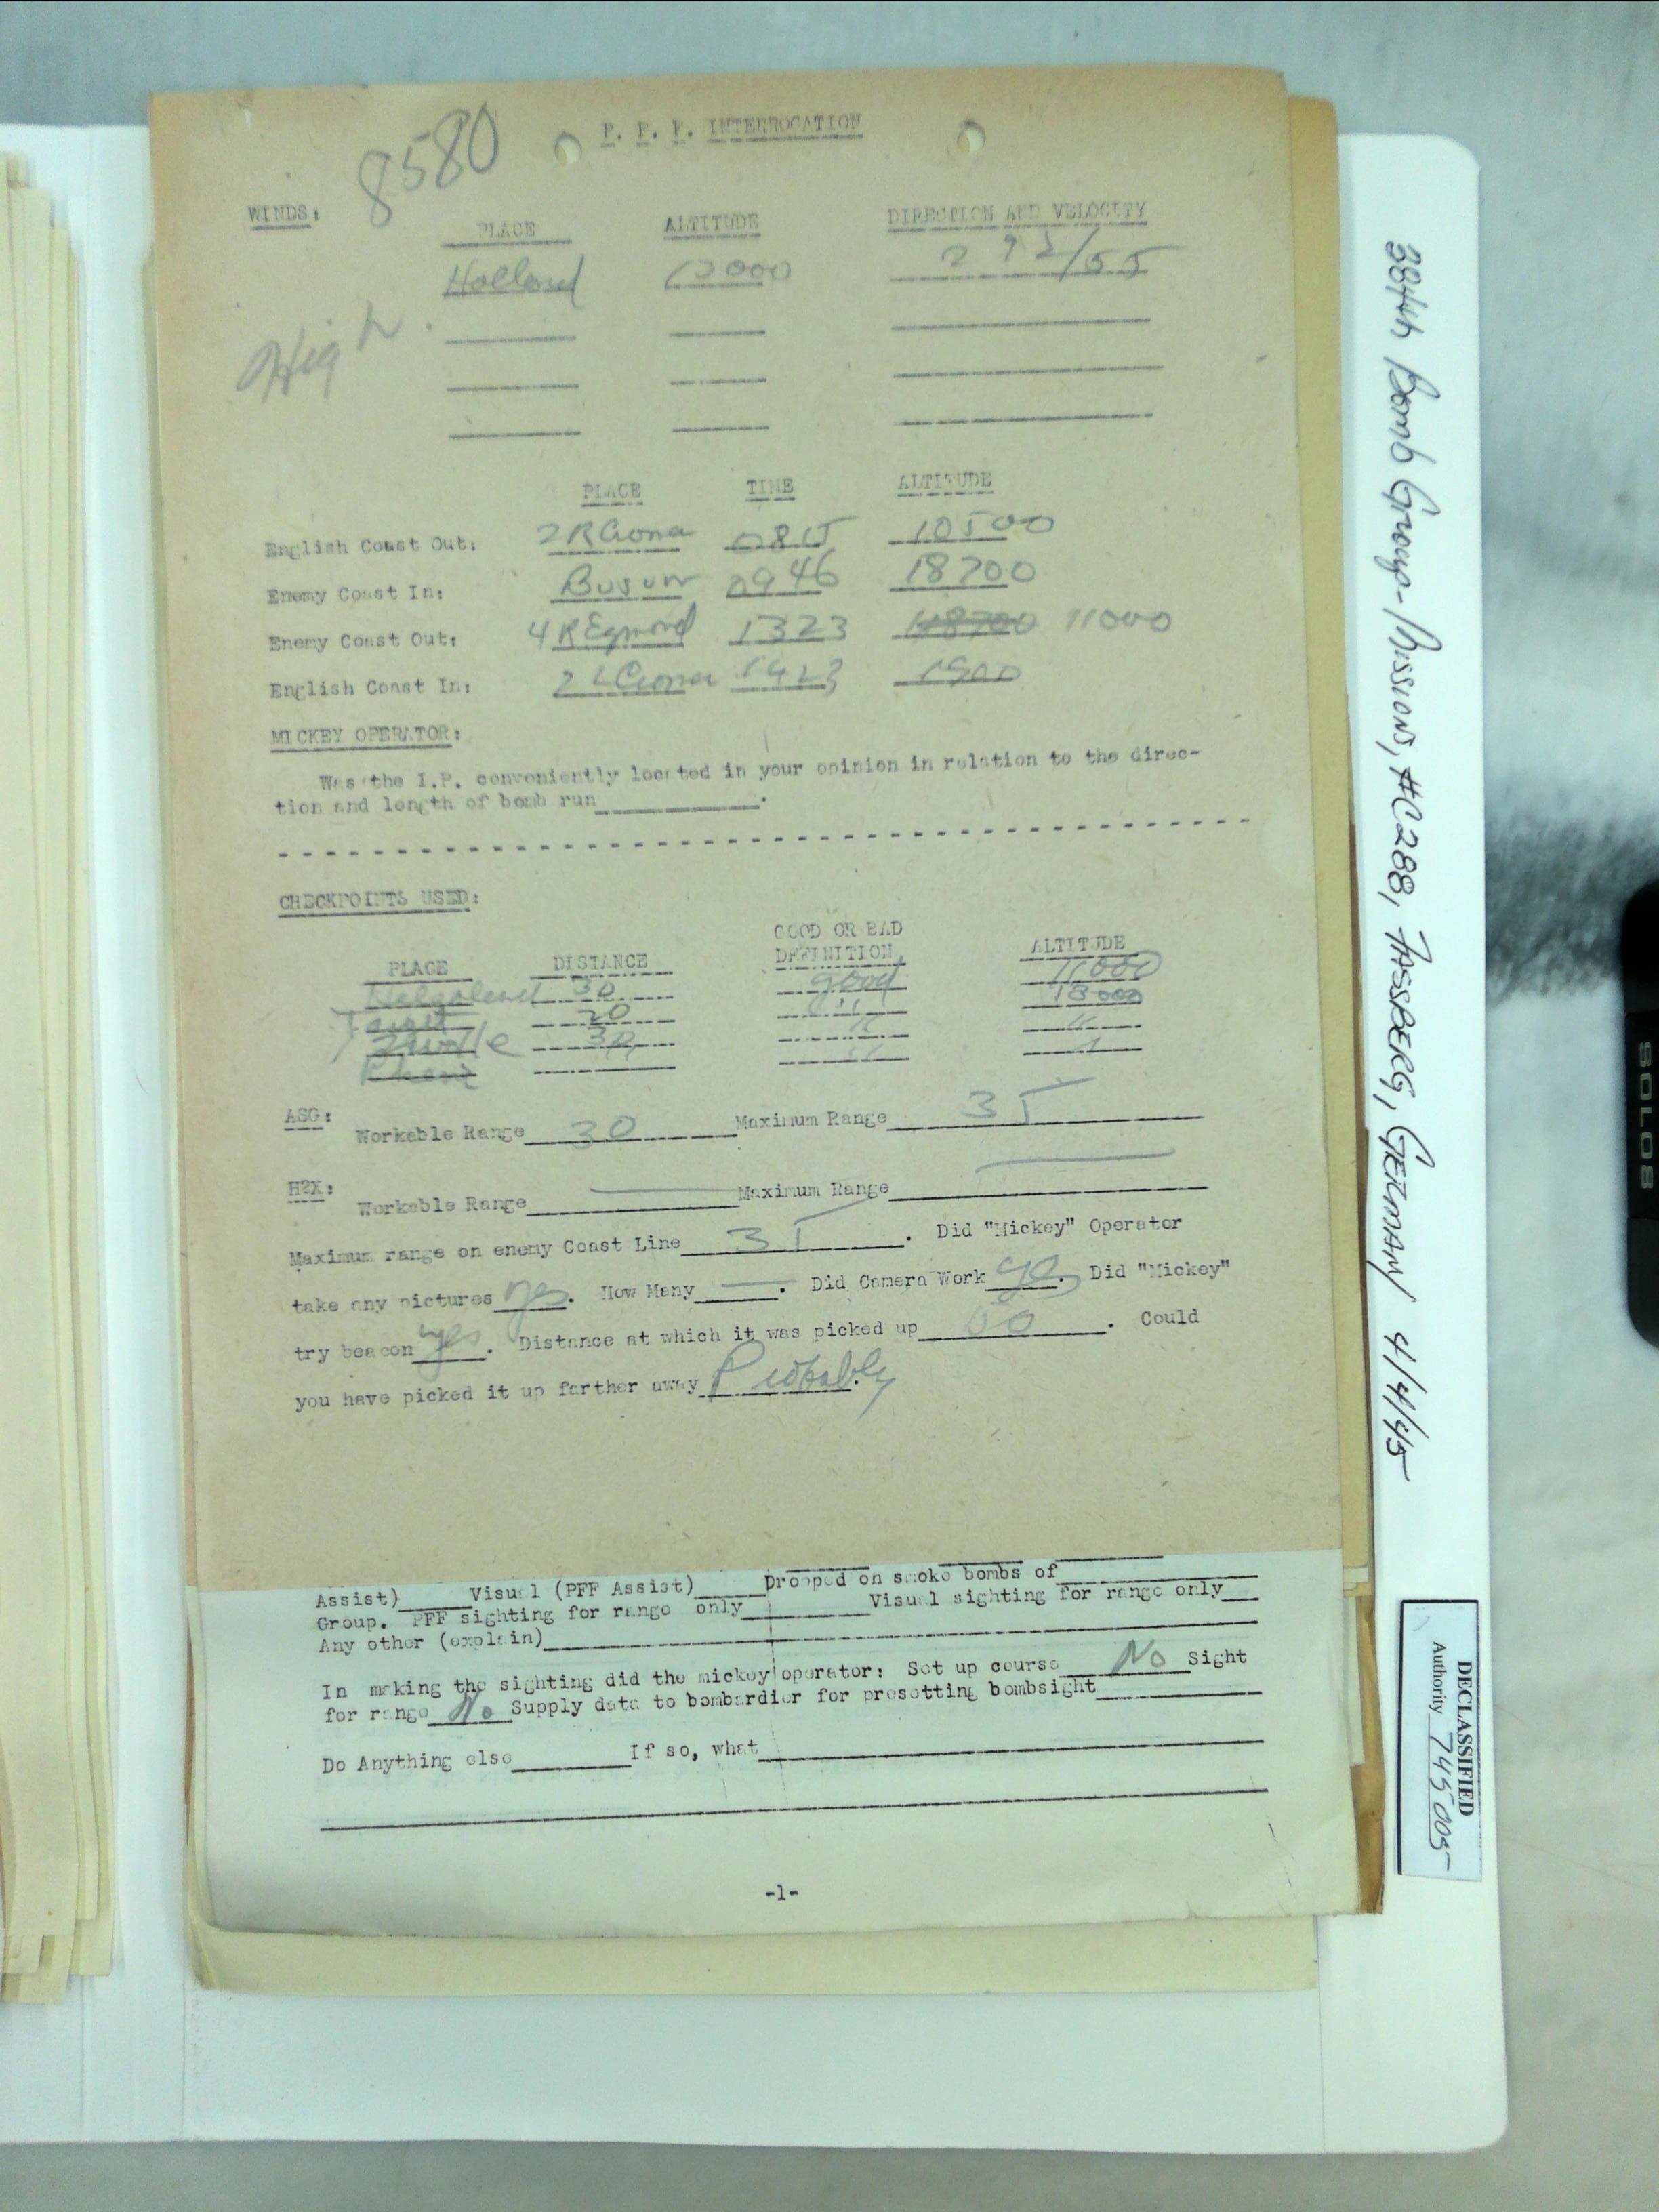 8580
P. F. F. INTERROGATION
WINDS:
PLACE ALTITUDE DIRECTION AND VELOCITY
Holland 13000 292/55
High
PLACE TIME ALTITUDE
English Coast Out: 0815 10500
Enemy Coast In: Busum 0946 18700
Enemy Coast Out: 4 R Egmond 1323 18700 11000
English Coast In: 1423 1900
MICKEY OPERATOR:
Was the I.P. conveniently located in your opinion in relation to the direc-
tion and length of bomb run .
CHECKPOINTS USED:
GOOD OR BAD
PLACE DISTANCE DEFINITION ALTITUDE
Helgoland 30 good
Target 20 " 18000
Zwolle 30 " "
" "
ASG:
Workable Range 30 Maximum Range 35
H2X:
Workable Range — Maximum Range —
Maximum range on enemy Coast Line 35. Did "Mickey" Operator
take any pictures yes. How Many —. Did Camera Work yes. Did "Mickey"
try beacon yes. Distance at which it was picked up 60. Could
you have picked it up farther away Probably.
Assist) Visual (PFF Assist) Dropped on smoke bombs of
Group. PFF sighting for range only Visual sighting for range only
Any other (explain)
In making the sighting did the mickey operator: Set up course No Sight
for range No Supply data to bombardier for presetting bombsight
Do Anything else If so, what
-1-
384th Bomb Group-Mission, #C288, FASSBERG, GERMANY 4/4/45
DECLASSIFIED
Authority 745005
SOLO8